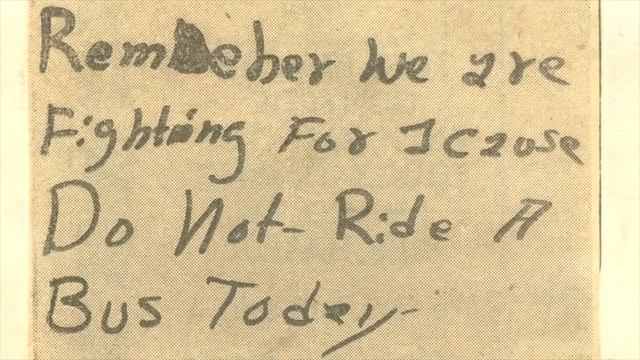 Remember We are
Fighting For a Cause
Do Not Ride A
Bus Today